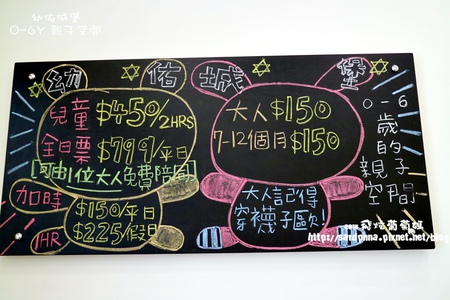 幼佑城堡
O-GY 親子宇宙
幼佑城堡
兒童 $450/2HRS
全日票 $799/平日
[可由1位大人免費陪同]
加時 $150/平日
1HR $225/假日
大人 $150
7-12個月 $150
大人記得
穿襪子歐!
0-6
歲的
親子
空間